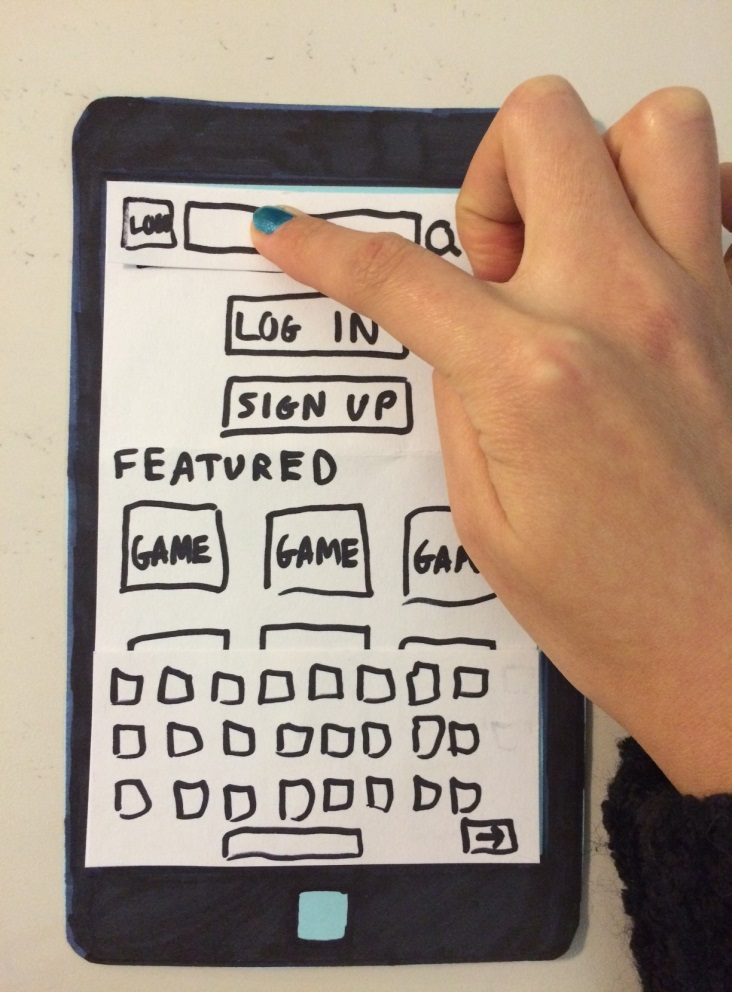 LOG IN
SIGN UP
FEATURED
GAME GAME